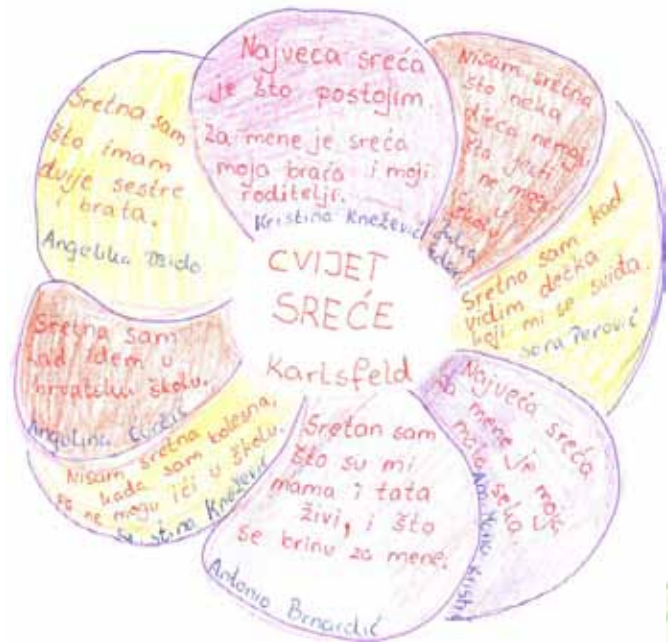 CVIJET
SREĆE
Karlsfeld
Najveća sreća
je što postojim.
Za mene je sreća
moja braća i moji
roditelji.
Kristina Knežević
Nisam sretna
što neka
djeca nemaju
što jesti
ne mogu
ići u
školu
Sretna sam kad
vidim dečka
koji mi se sviđa.
Sara Perović
Najveća sreća
za mene je moja
mala seka.
Ana
Sretan sam
što su mi
mama i tata
živi, i što
se brinu za mene.
Antonio Brnardić
Nisam sretna
kada sam bolesna,
pa ne mogu ići u školu.
Knežević
Sretna sam
kad idem u
hrvatsku školu.
Angelina Čuržić
Sretna sam
što imam
dvije sestre
i brata.
Angelika